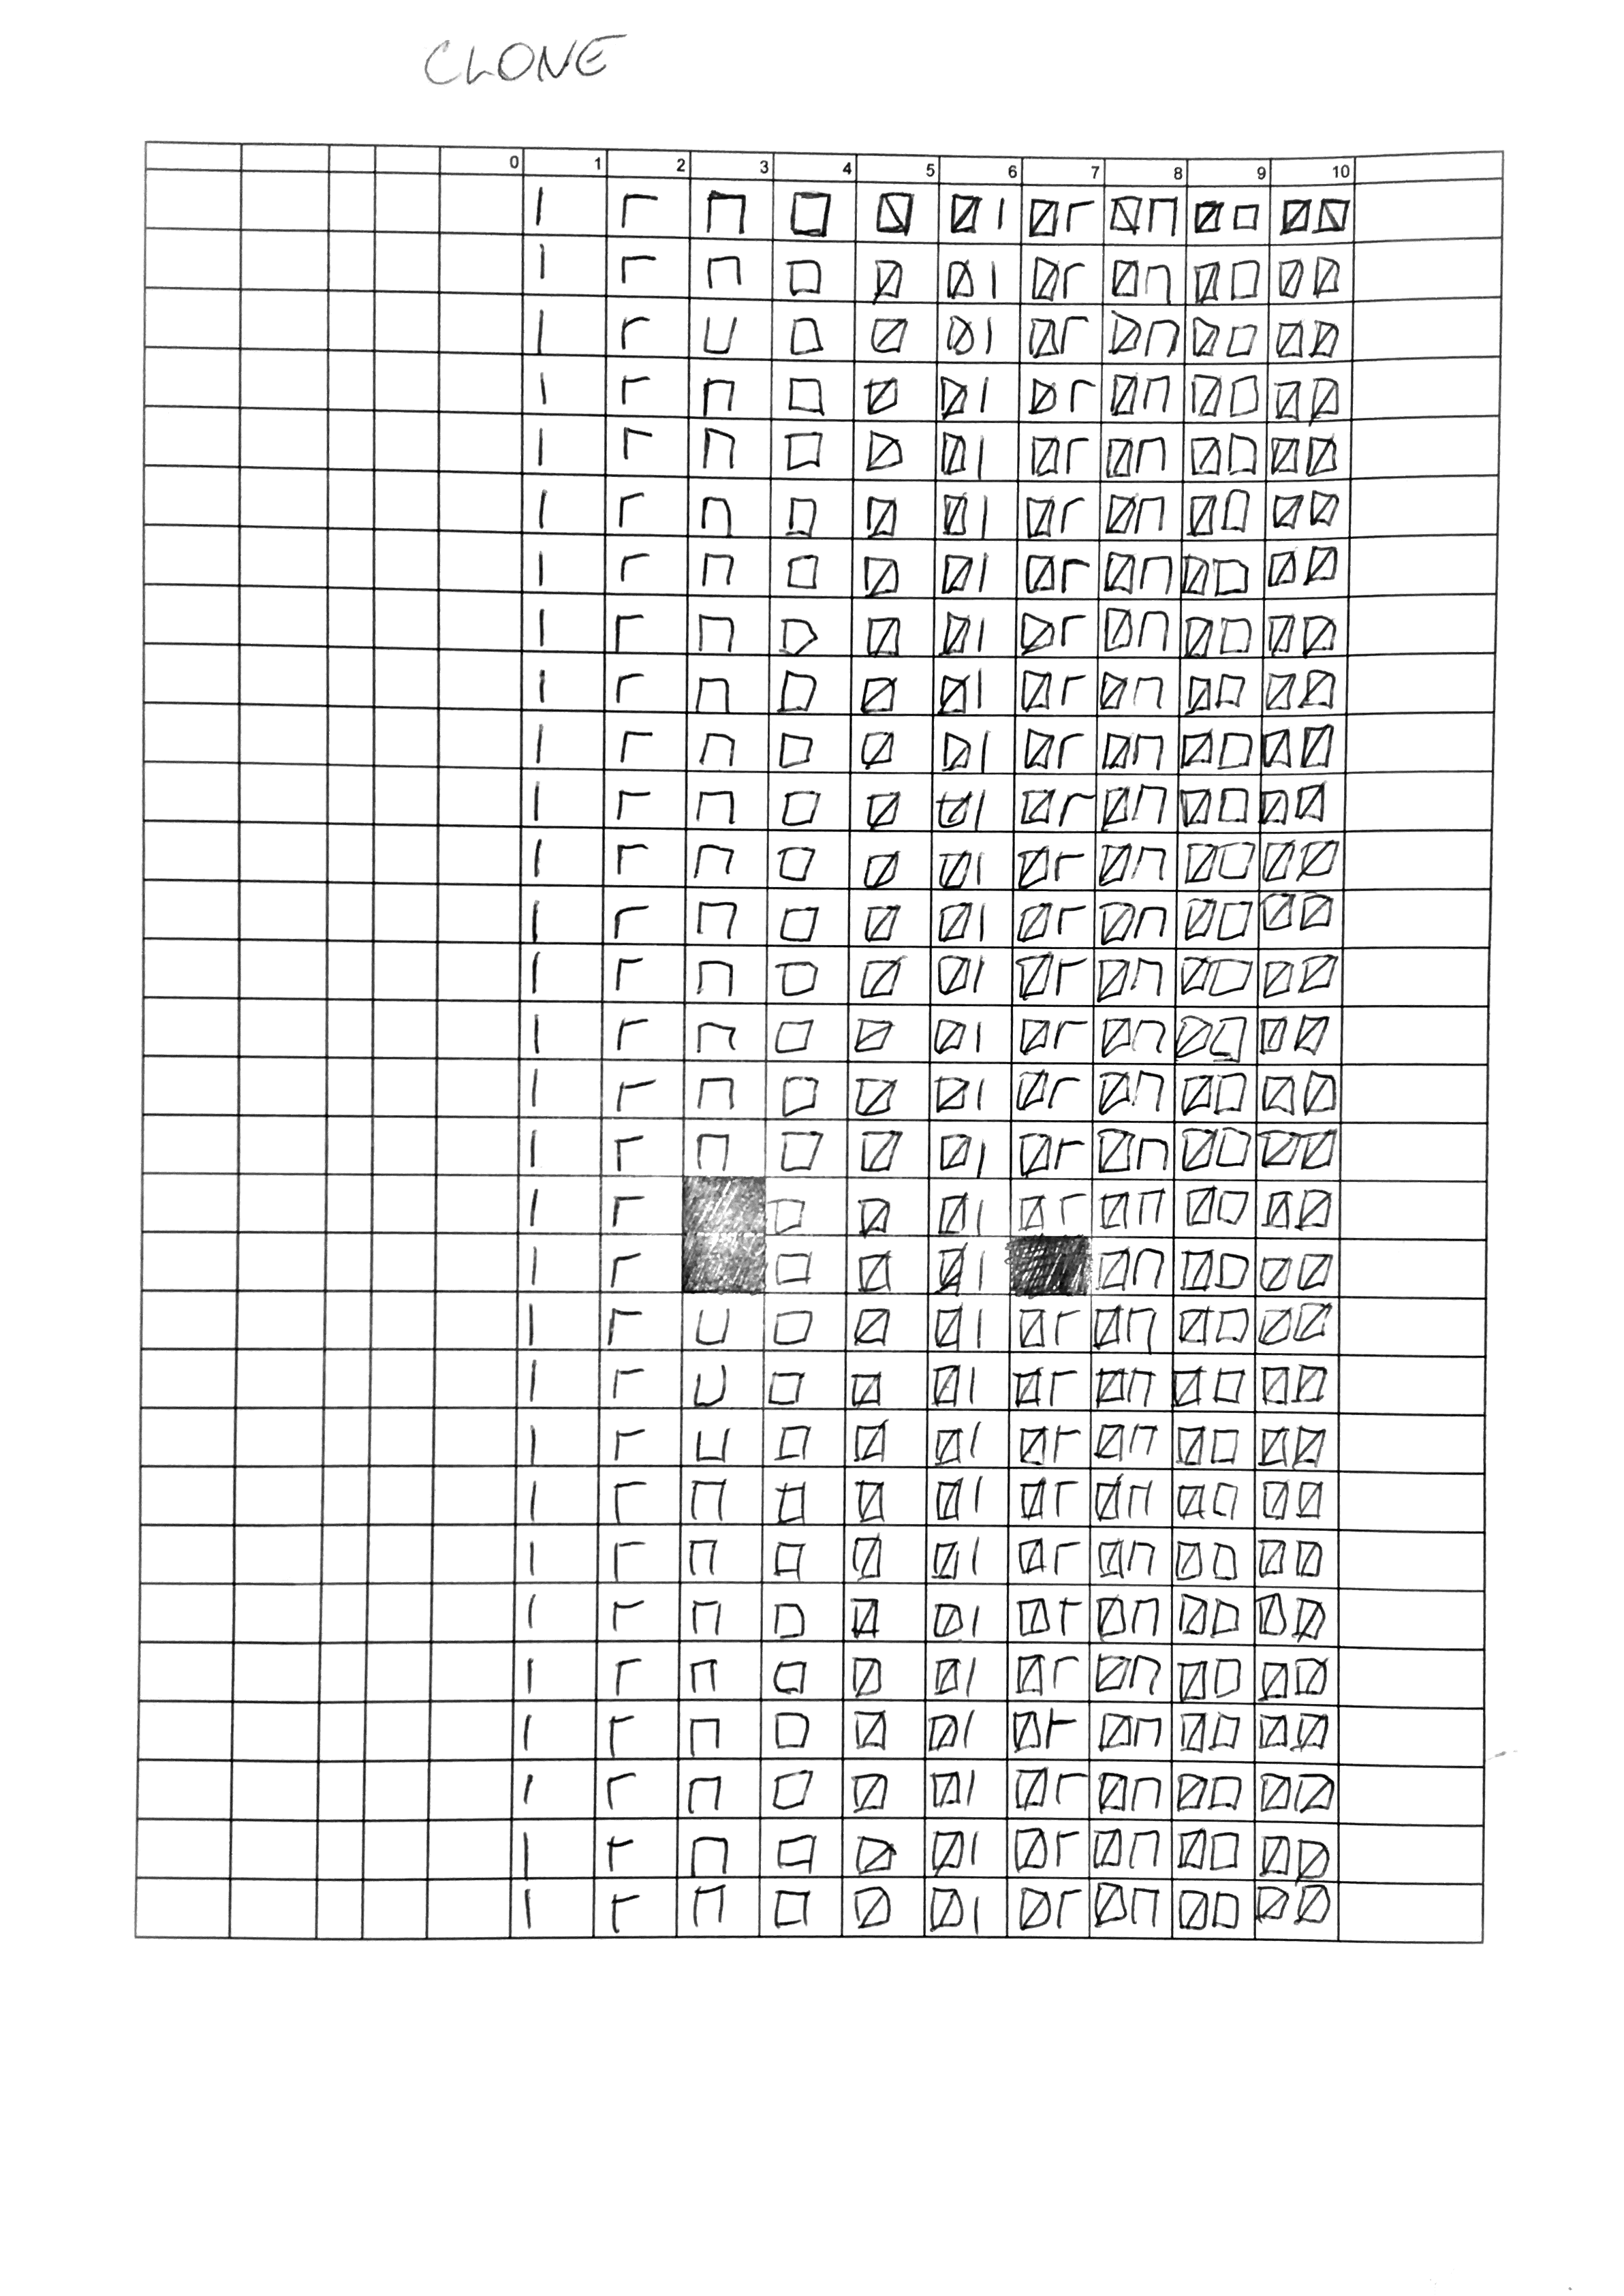 CLONE
0 1 2 3 4 5 6 7 8 9 10